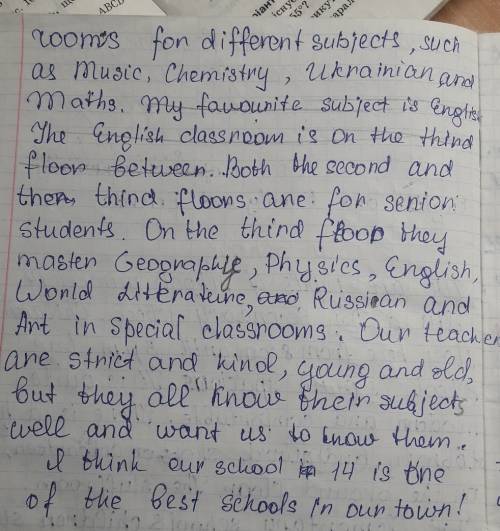 rooms for different subjects, such
as Music, Chemistry, Ukrainian and
Maths. My favourite subject is English
The English classroom is on the third
floor between. Both the second and
then third floors are for senior
students. On the third floor they
master Geographye, Physics, English,
World Literature, and Russian and
Art in special classrooms. Our teacher
are strict and kind, young and old,
but they all know their subjects
well and want us to know them.
I think our school 14 is one
of the best schools in our town!